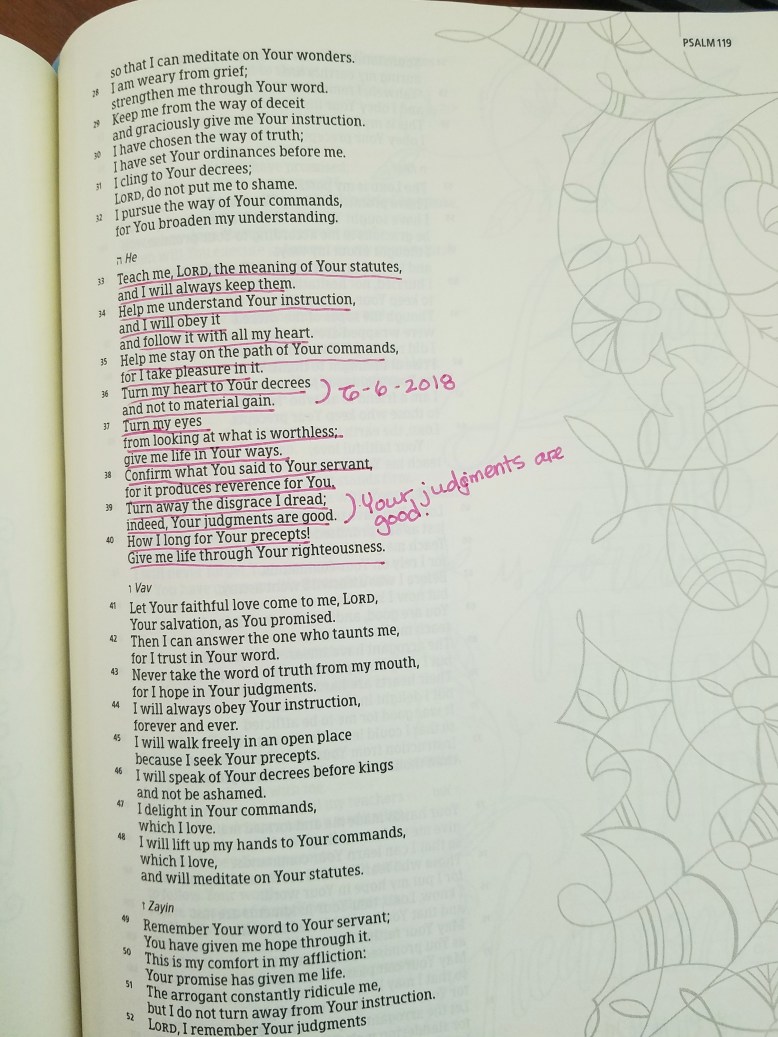 PSALM 119
so that I can meditate on Your wonders.
28 I am weary from grief;
strengthen me through Your word.
29 Keep me from the way of deceit
and graciously give me Your instruction.
30 I have chosen the way of truth;
I have set Your ordinances before me.
31 I cling to Your decrees;
LORD, do not put me to shame.
32 I pursue the way of Your commands,
for You broaden my understanding.
ה He
33 Teach me, LORD, the meaning of Your statutes,
and I will always keep them.
34 Help me understand Your instruction,
and I will obey it
and follow it with all my heart.
35 Help me stay on the path of Your commands,
for I take pleasure in it.
36 Turn my heart to Your decrees
and not to material gain.
6-6-2018
37 Turn my eyes
from looking at what is worthless;
give me life in Your ways.
38 Confirm what You said to Your servant,
for it produces reverence for You.
39 Turn away the disgrace I dread;
indeed, Your judgments are good.
Your judgments are
good!
40 How I long for Your precepts!
Give me life through Your righteousness.
ו Vav
41 Let Your faithful love come to me, LORD,
Your salvation, as You promised.
42 Then I can answer the one who taunts me,
for I trust in Your word.
43 Never take the word of truth from my mouth,
for I hope in Your judgments.
44 I will always obey Your instruction,
forever and ever.
45 I will walk freely in an open place
because I seek Your precepts.
46 I will speak of Your decrees before kings
and not be ashamed.
47 I delight in Your commands,
which I love.
48 I will lift up my hands to Your commands,
which I love,
and will meditate on Your statutes.
ז Zayin
49 Remember Your word to Your servant;
You have given me hope through it.
50 This is my comfort in my affliction:
Your promise has given me life.
51 The arrogant constantly ridicule me,
but I do not turn away from Your instruction.
52 LORD, I remember Your judgments